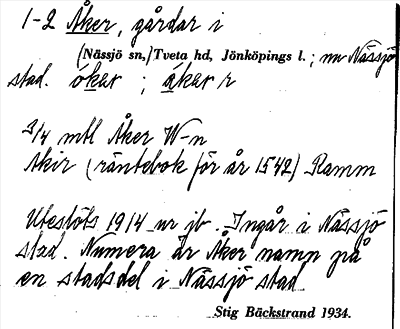 1-2 Åker, gårdar i
(Nässjö sn,) Tveta hd, Jönköpings l.; nu Nässjö
stad. ókər ; ákər r
3/4 mtl Åker W-n
Akir (räntebok för år 1542) Ramm
Uteslöts 1914 ur jb. Ingår i Nässjö
stad. Numera är Åker namn på
en stadsdel i Nässjö stad.
Stig Bäckstrand 1934.